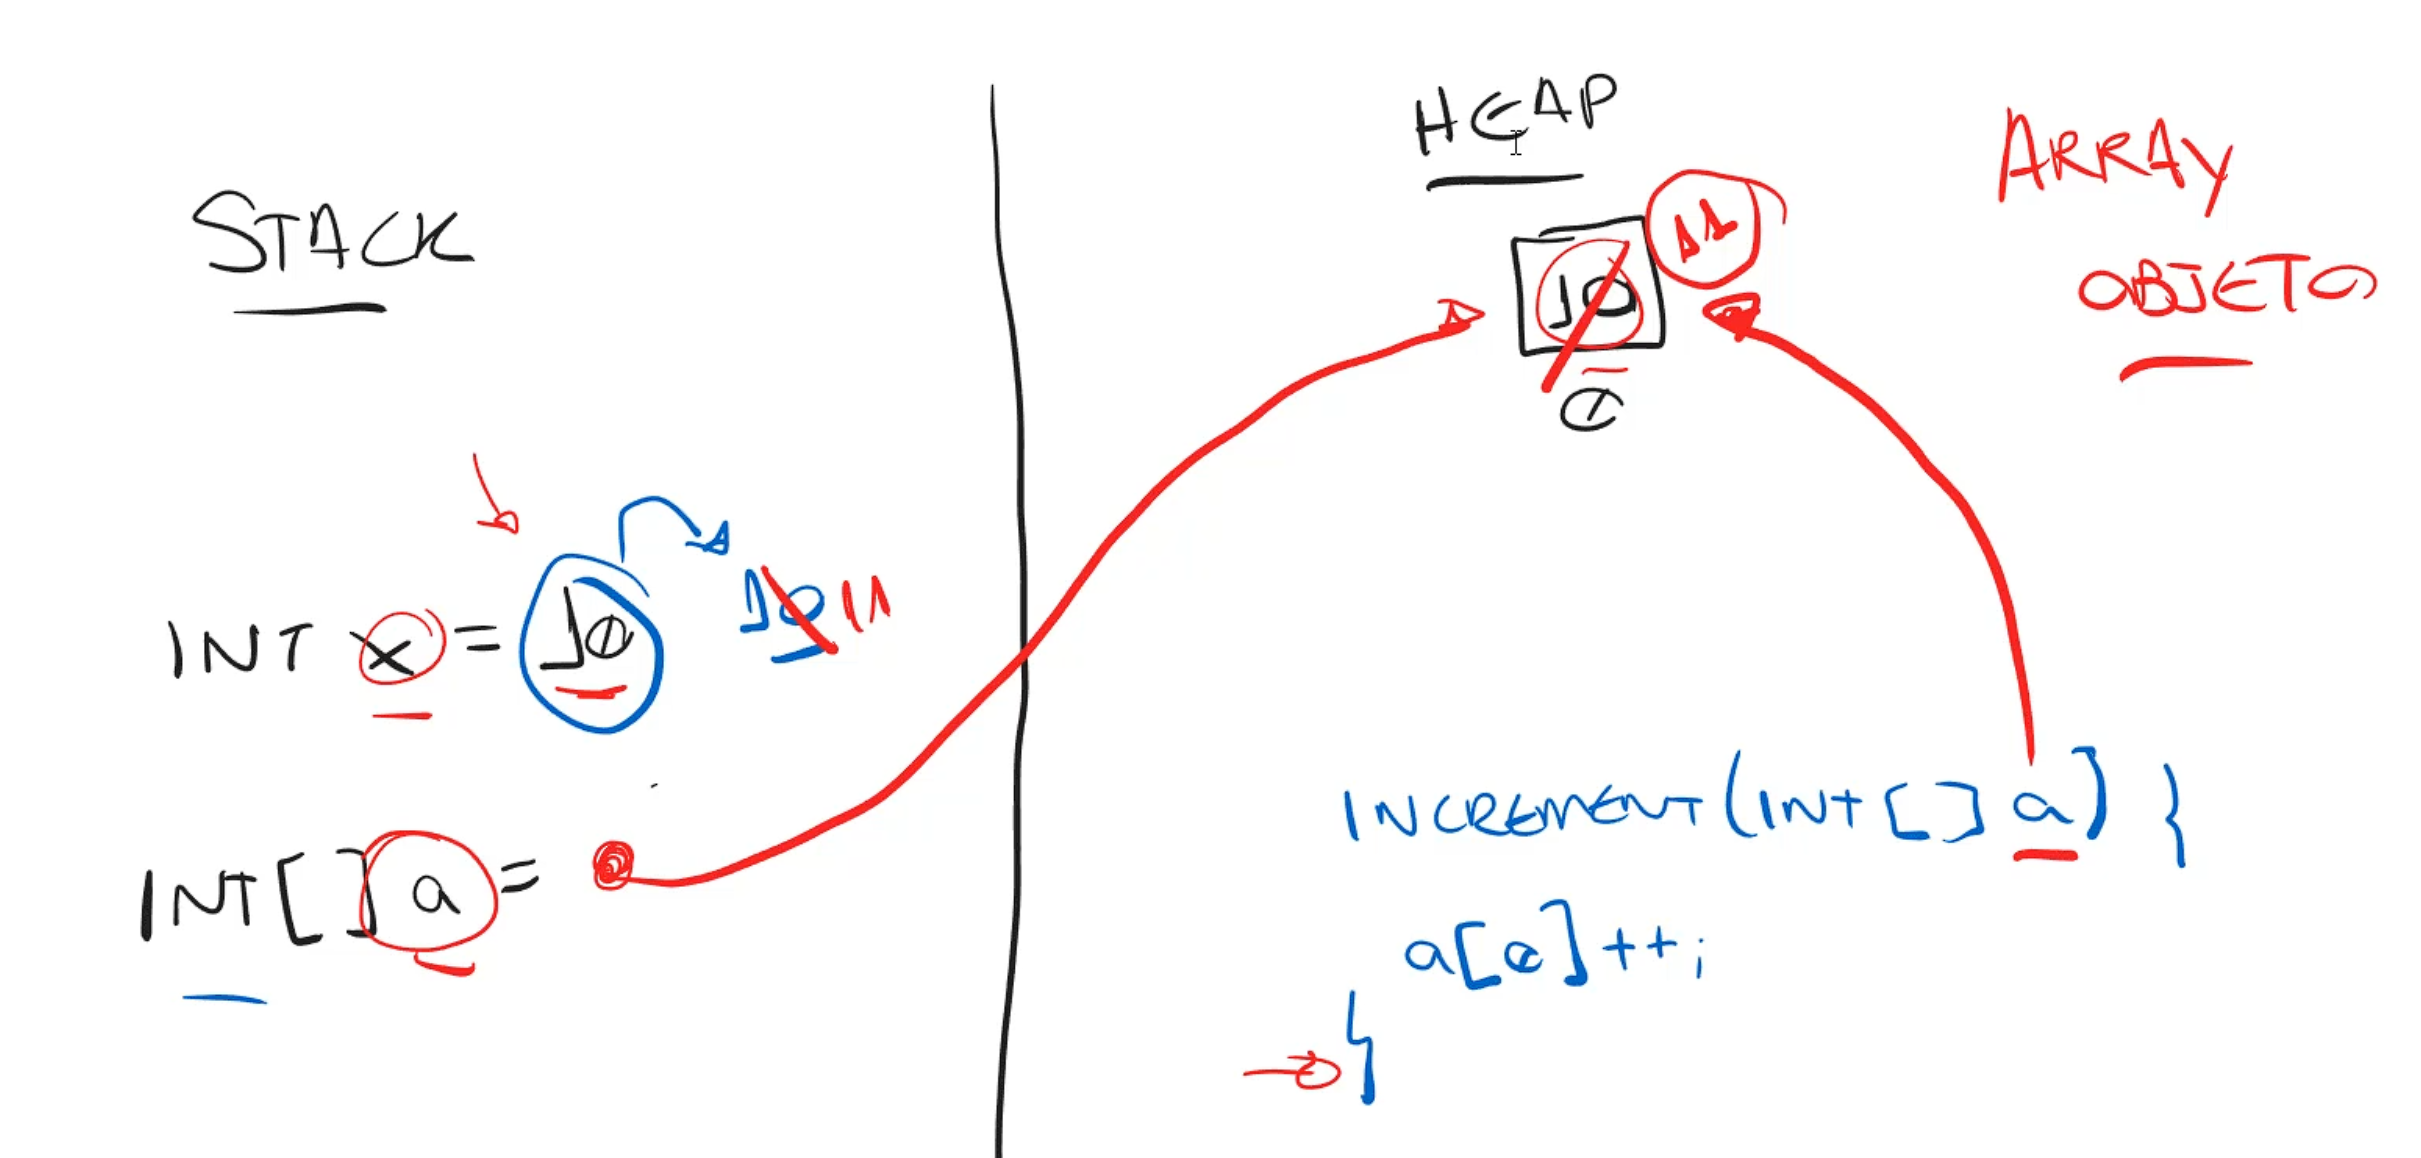 STACK
INT x = 10
10 11
INT[] a =
HEAP
10
11
0
ARRAY
OBJETO
INCREMENT(INT[] a) {
a[0]++;
}